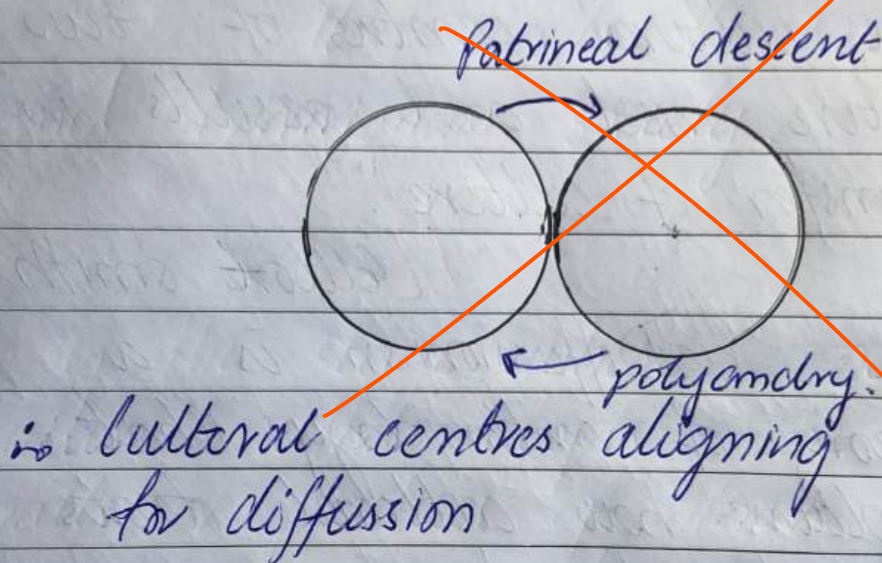 Patrineal descent
polyandry.
∴ Cultural centres aligning
for diffussion